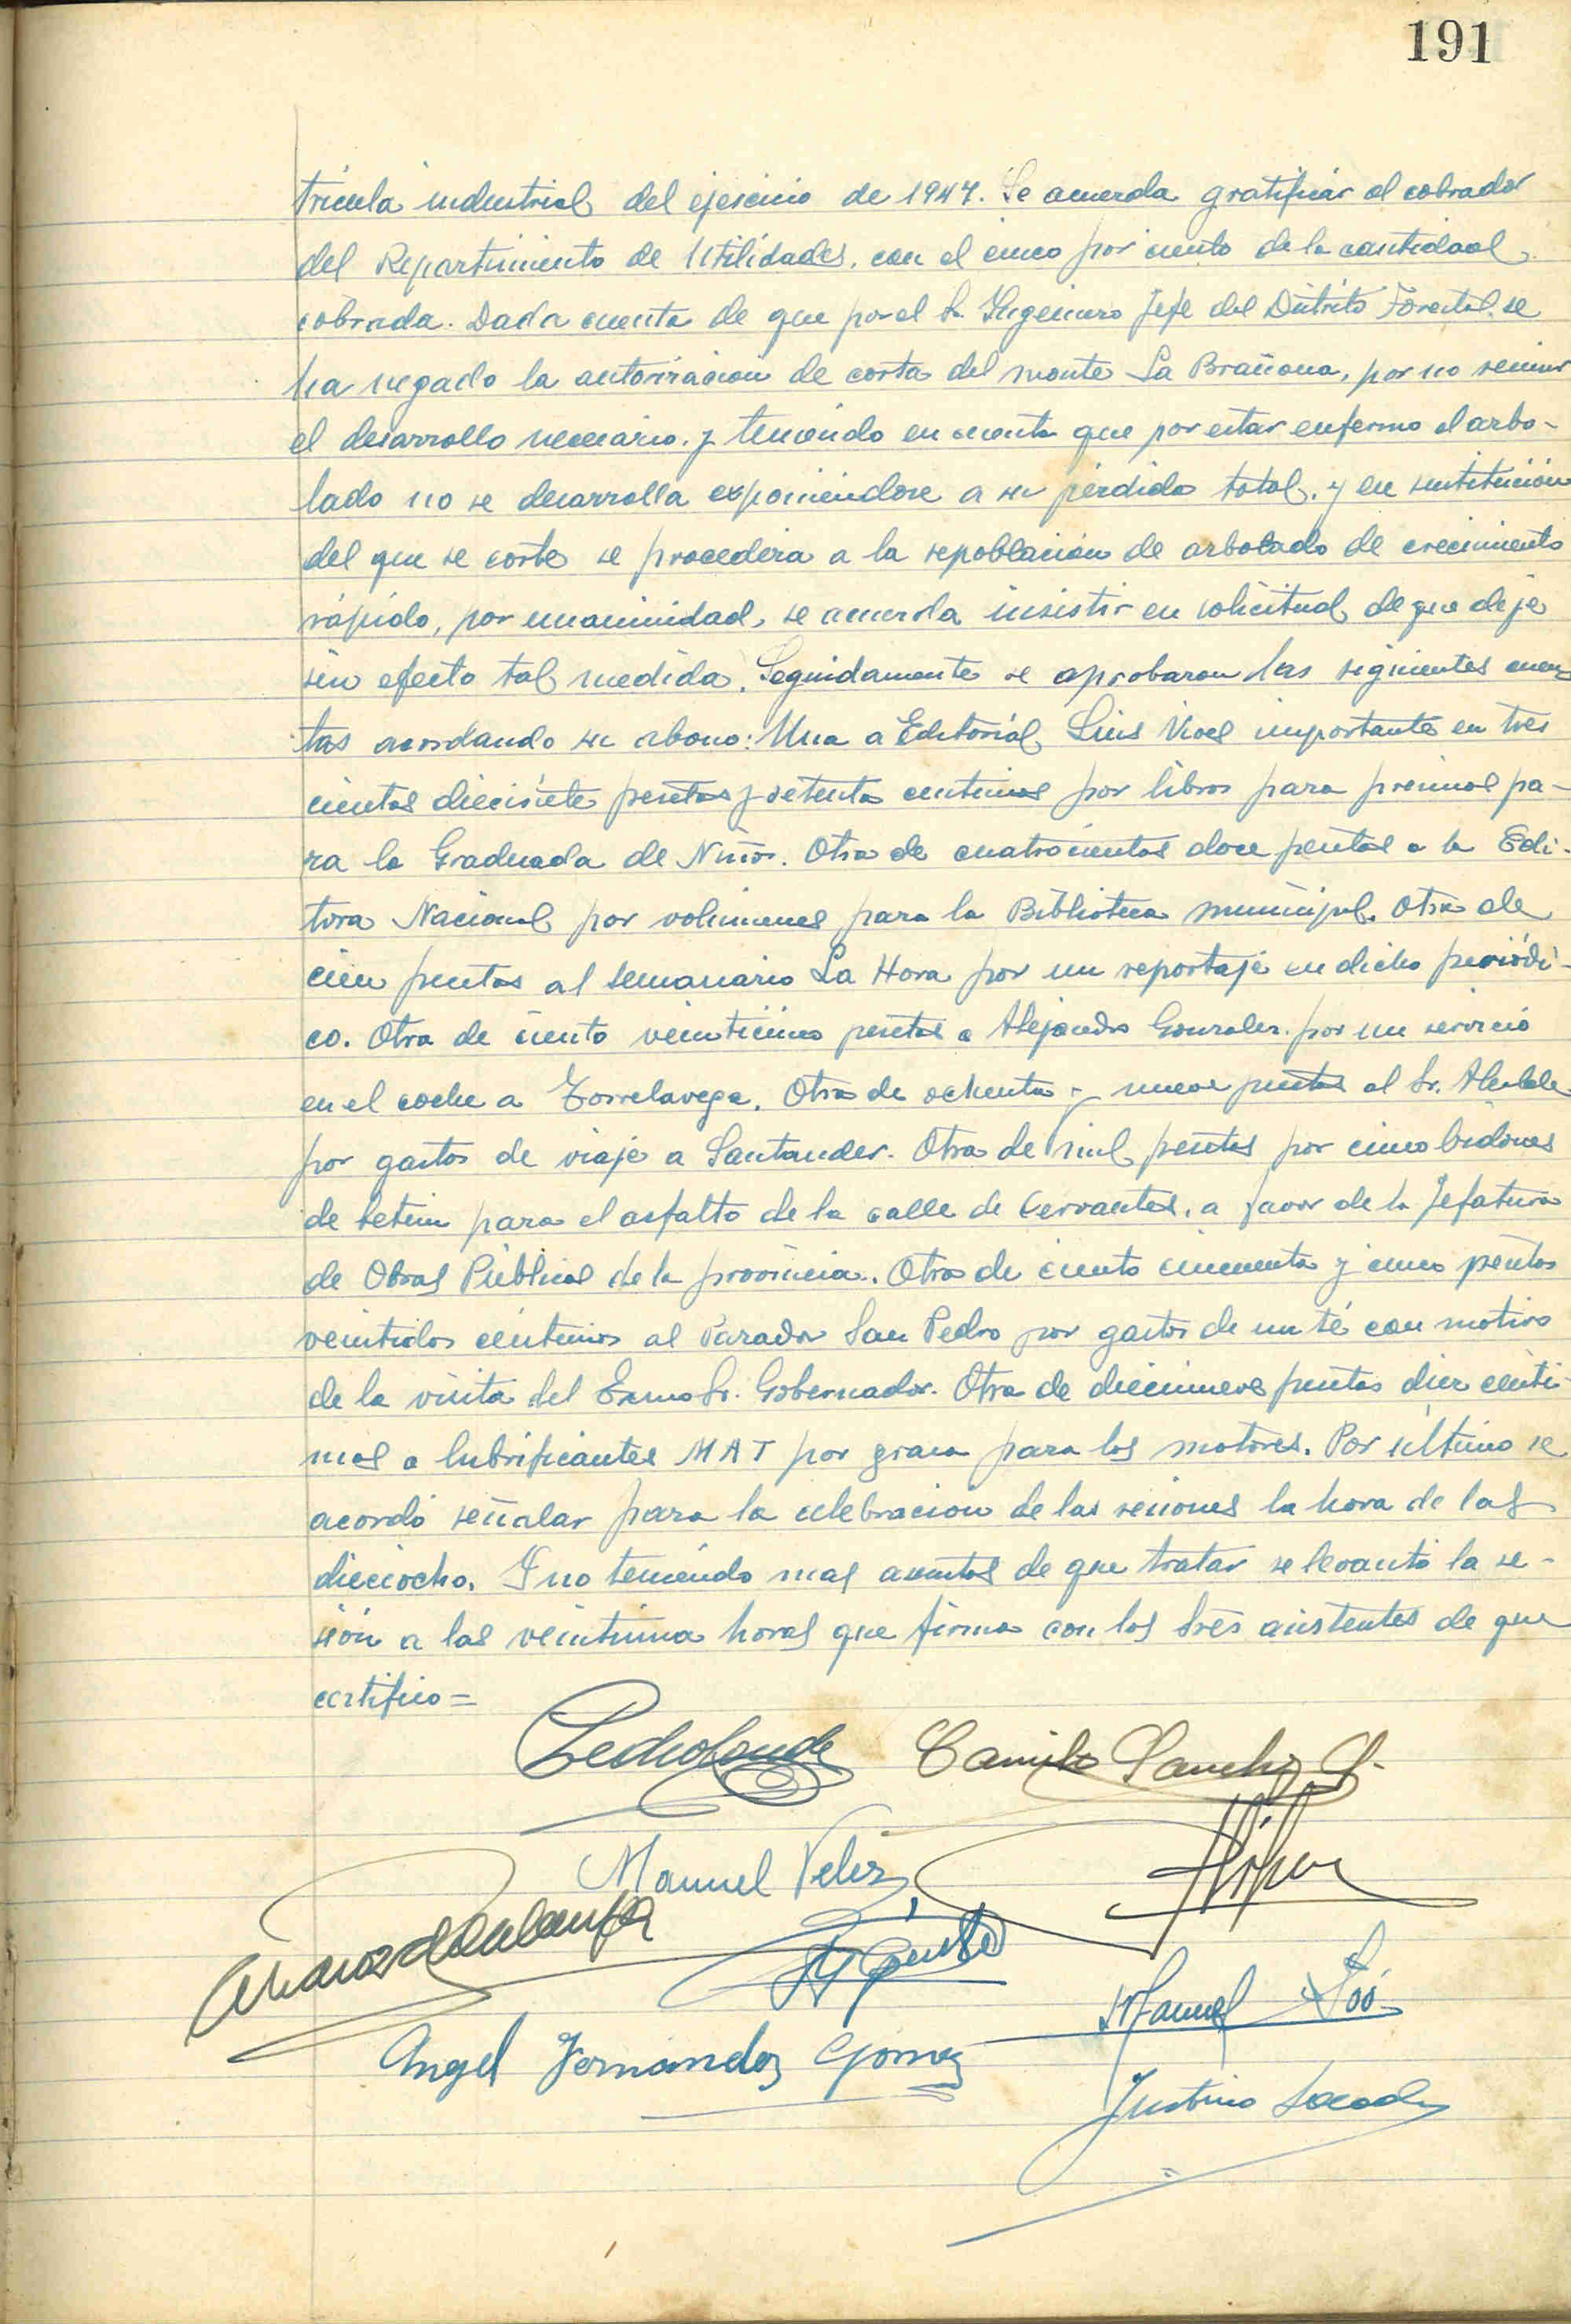 191
trícula industrial del ejercicio de 1947. Se acuerda gratificar al cobrador
del Repartimiento de Utilidades, con el cinco por ciento de la cantidad
cobrada. Dada cuenta de que por el Sr. Ingeniero Jefe del Distrito Forestal se
ha negado la autorización de corta del monte La Brañona, por no reunir
el desarrollo necesario. y teniendo en cuenta que por estar enfermo el arbo-
lado no se desarrolla exponiendose a su perdida total, y en sustitución
del que se corte se procederia a la repoblación de arbolado de crecimiento
rápido, por unanimidad, se acuerda insistir en solicitud de que deje
sin efecto tal medida. Seguidamente se aprobaron las siguientes cuen-
tas acordando su abono: Una a Editorial Luis Vives importante en tres
cientas diecisiete pesetas y setenta centimos por libros para premios pa-
ra la Graduada de Niños. Otra de cuatrocientas doce pesetas a la Edi-
tora Nacional por volúmenes para la Biblioteca municipal. Otra de
cien pesetas al semanario La Hora por un reportaje en dicho periódi-
co. Otra de ciento veinticinco pesetas a Alejandro Gonzalez. por un servicio
en el coche a Torrelavega. Otra de ochenta y nueve pesetas al Sr. Alcalde
por gastos de viaje a Santander. Otra de mil pesetas por cinco bidones
de betun para el asfalto de la calle de Cervantes, a favor de la Jefatura
de Obras Públicas de la provincia. Otra de ciento cincuenta y cinco pesetas
veintidos céntimos al Parador San Pedro por gastos de un té con motivo
de la visita del Excmo Sr. Gobernador. Otra de diecinueve pesetas diez cénti-
mos a lubrificantes MAT por grasa para los motores. Por último se
acordó señalar para la celebración de las sesiones la hora de las
dieciocho. Y no teniendo mas asuntos de que tratar se levantó la se-
sión a las veintiuna horas que firma con los Sres asistentes de que
certifico =
Camilo Sanchez G.
Manuel Velez
Manuel
Angel Fernandez Gomez
Justino